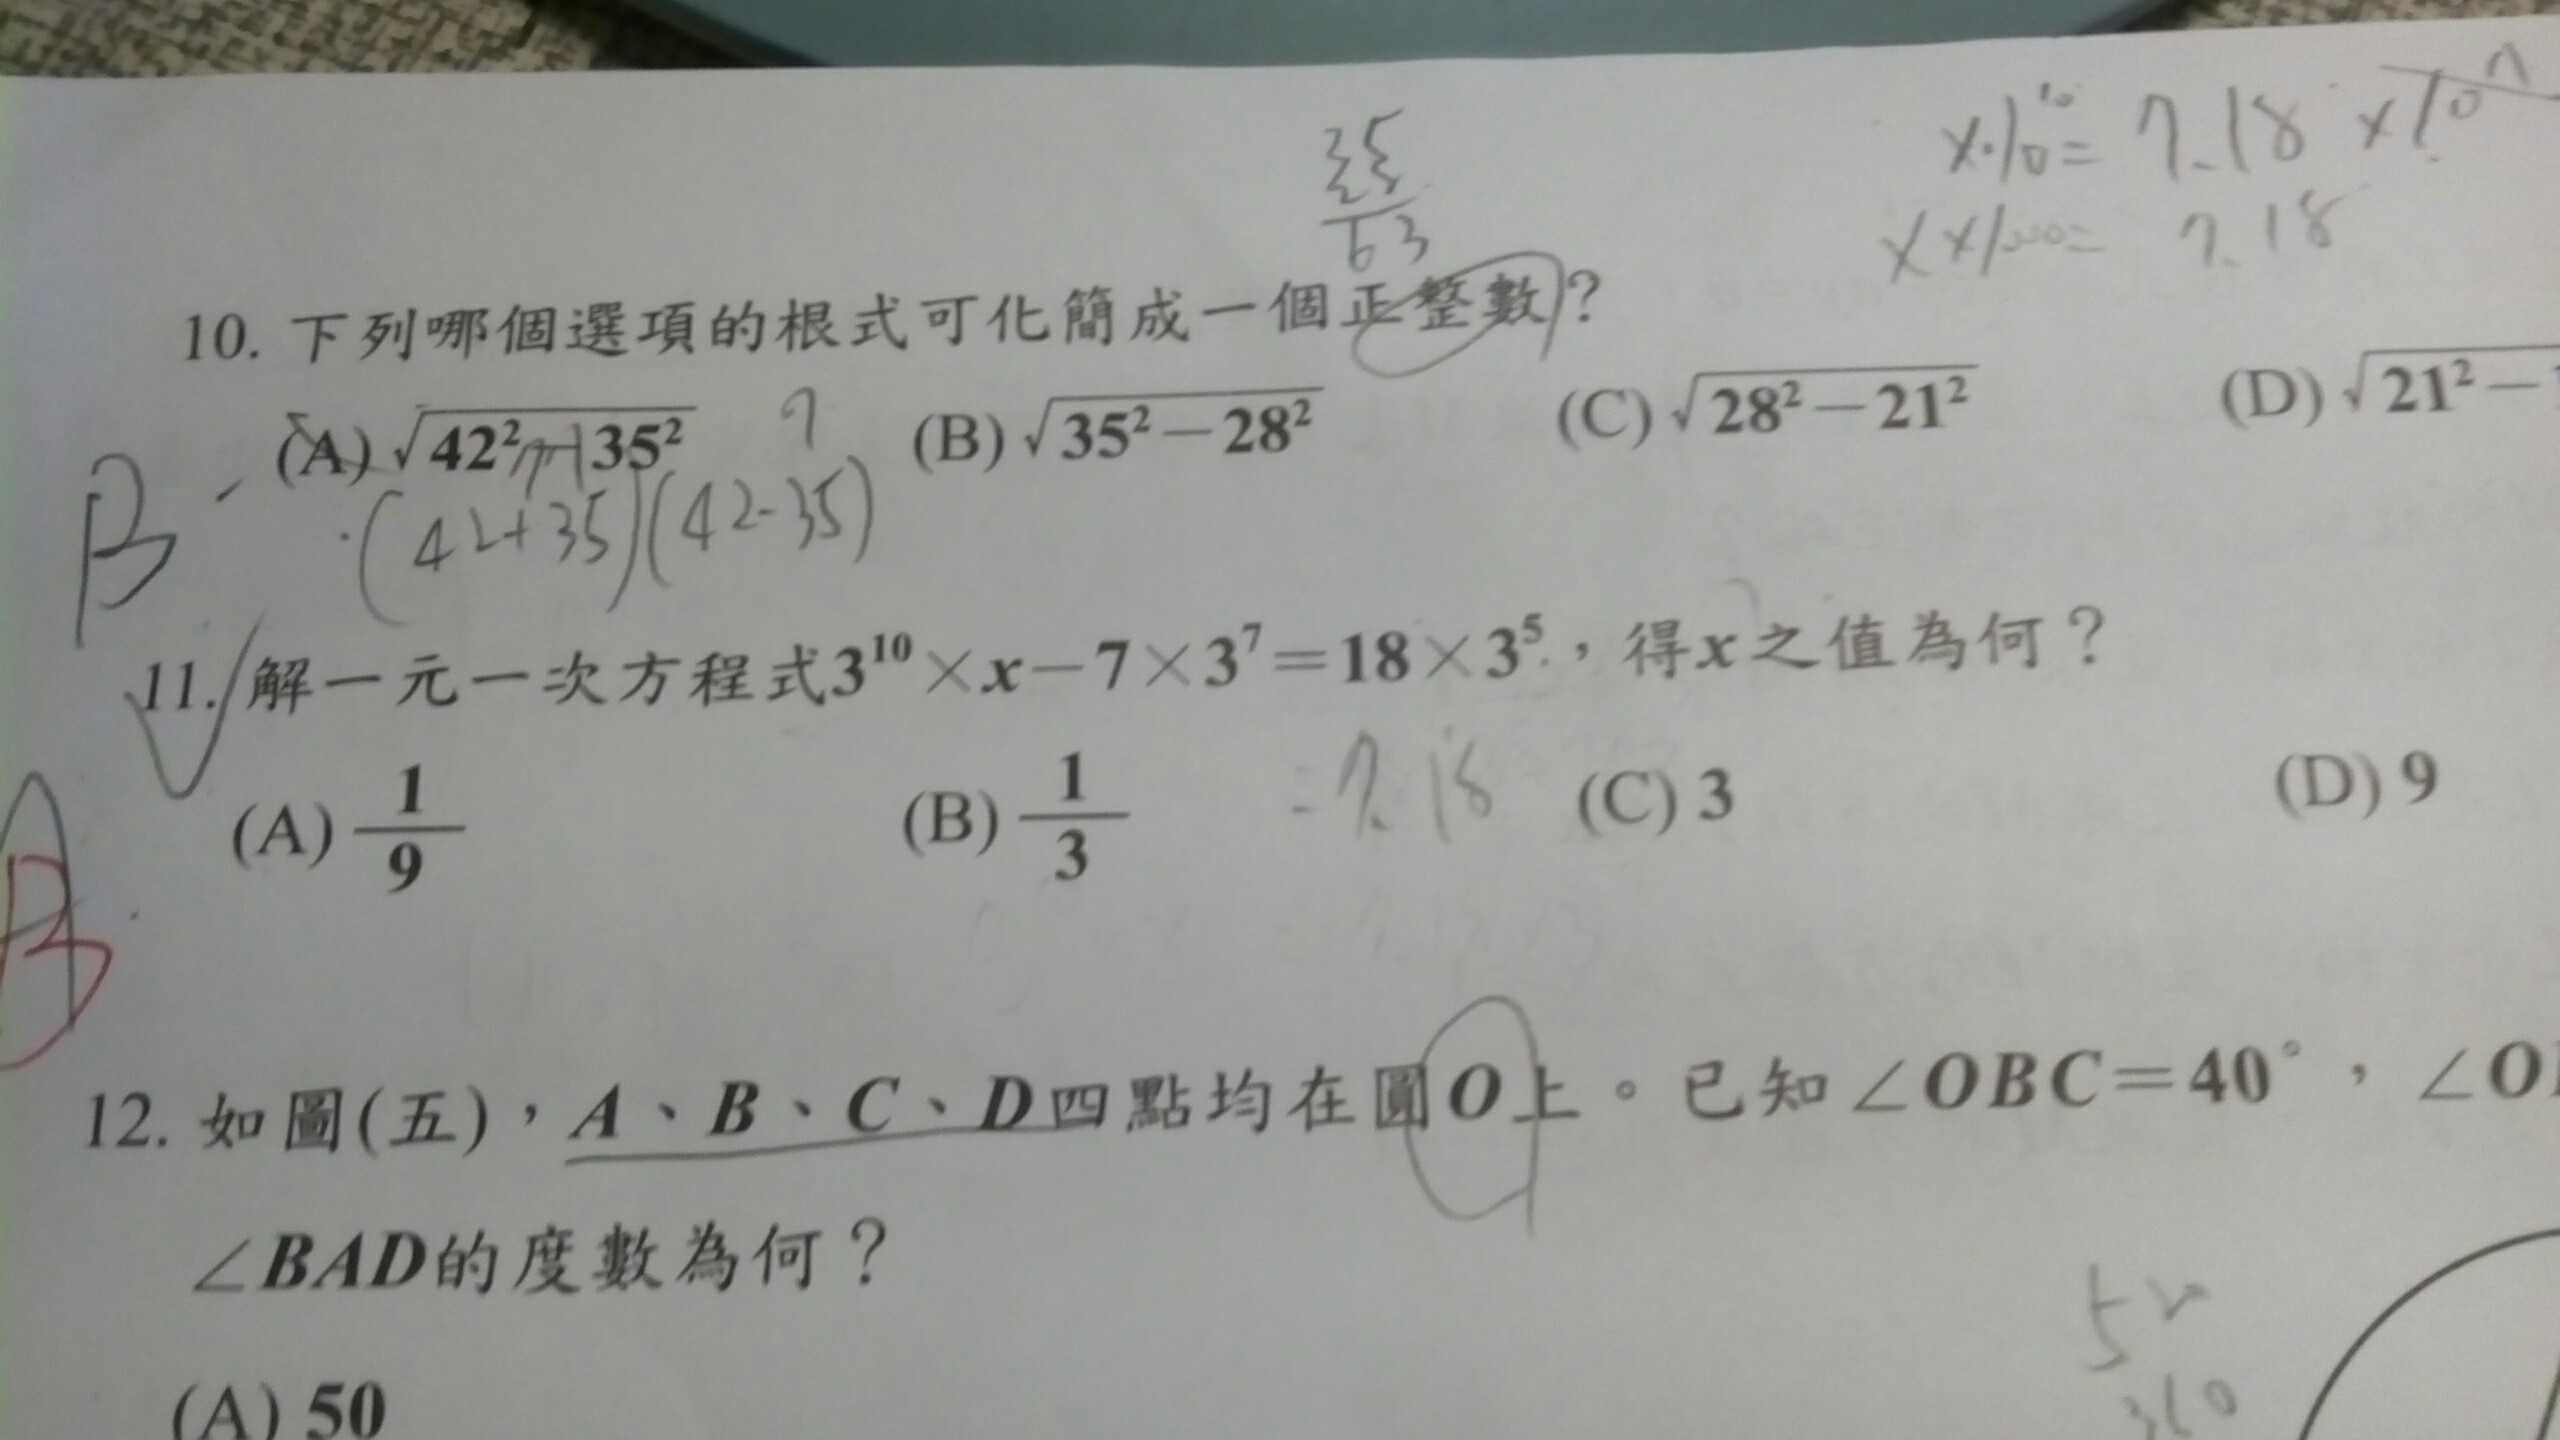 x·10¹⁰= 7.18 ×10ⁿ
35
63
10. 下列哪個選項的根式可化簡成一個正整數?
(A) √42²−35² 7 (B) √35²−28² (C) √28²−21² (D) √21²−
B
(42+35)(42-35)
11. 解一元一次方程式3¹⁰×x−7×3⁷=18×3⁵,得x之值為何?
(A) 1/9 (B) 1/3 =7.18 (C) 3 (D) 9
B
12. 如圖(五),A、B、C、D四點均在圓O上。已知∠OBC=40°,∠O
∠BAD的度數為何?
(A) 50
360